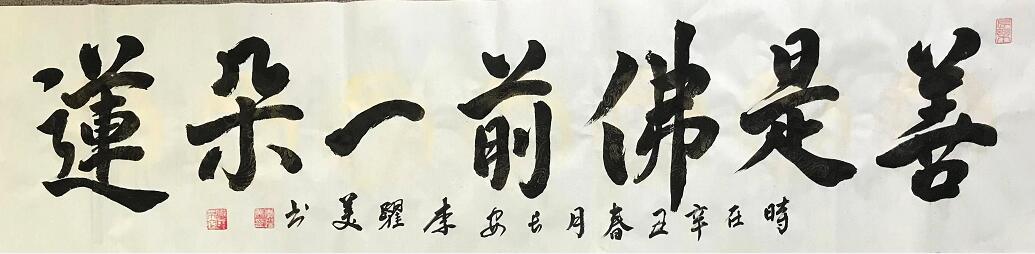 善是佛前一朵蓮
時在辛丑春月長安李耀美书